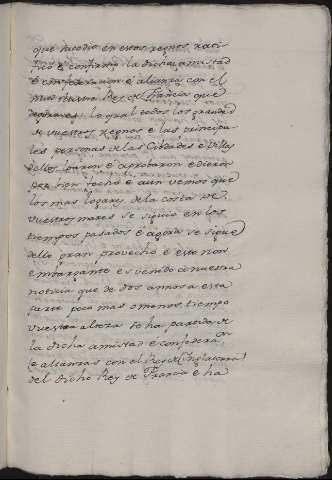 que succedio en estos reynos rati
fico e confirmo la dicha amistad
e confederacion e alianza con el
mui Rey de Francia que
lo qual todos los grandes
de vuestros Reynos e las principa
les personas de las Cibdades e Villas
dellos loaron e aprobaron e dieron
por bien fecho e aun vemos que
los mas logares de la costa de
vuestros mares se siguio en los
tiempos pasados e agora se sigue
dello gran provecho e esto non
embargante es venido a nuestra
noticia que de dos annos a esta
parte poco mas o menos tiempo
vuestra alteza se ha partido de
la dicha amistad e confedera on
e alianzas con el Rey de Inglaterra
del dicho Rey de Francia e ha